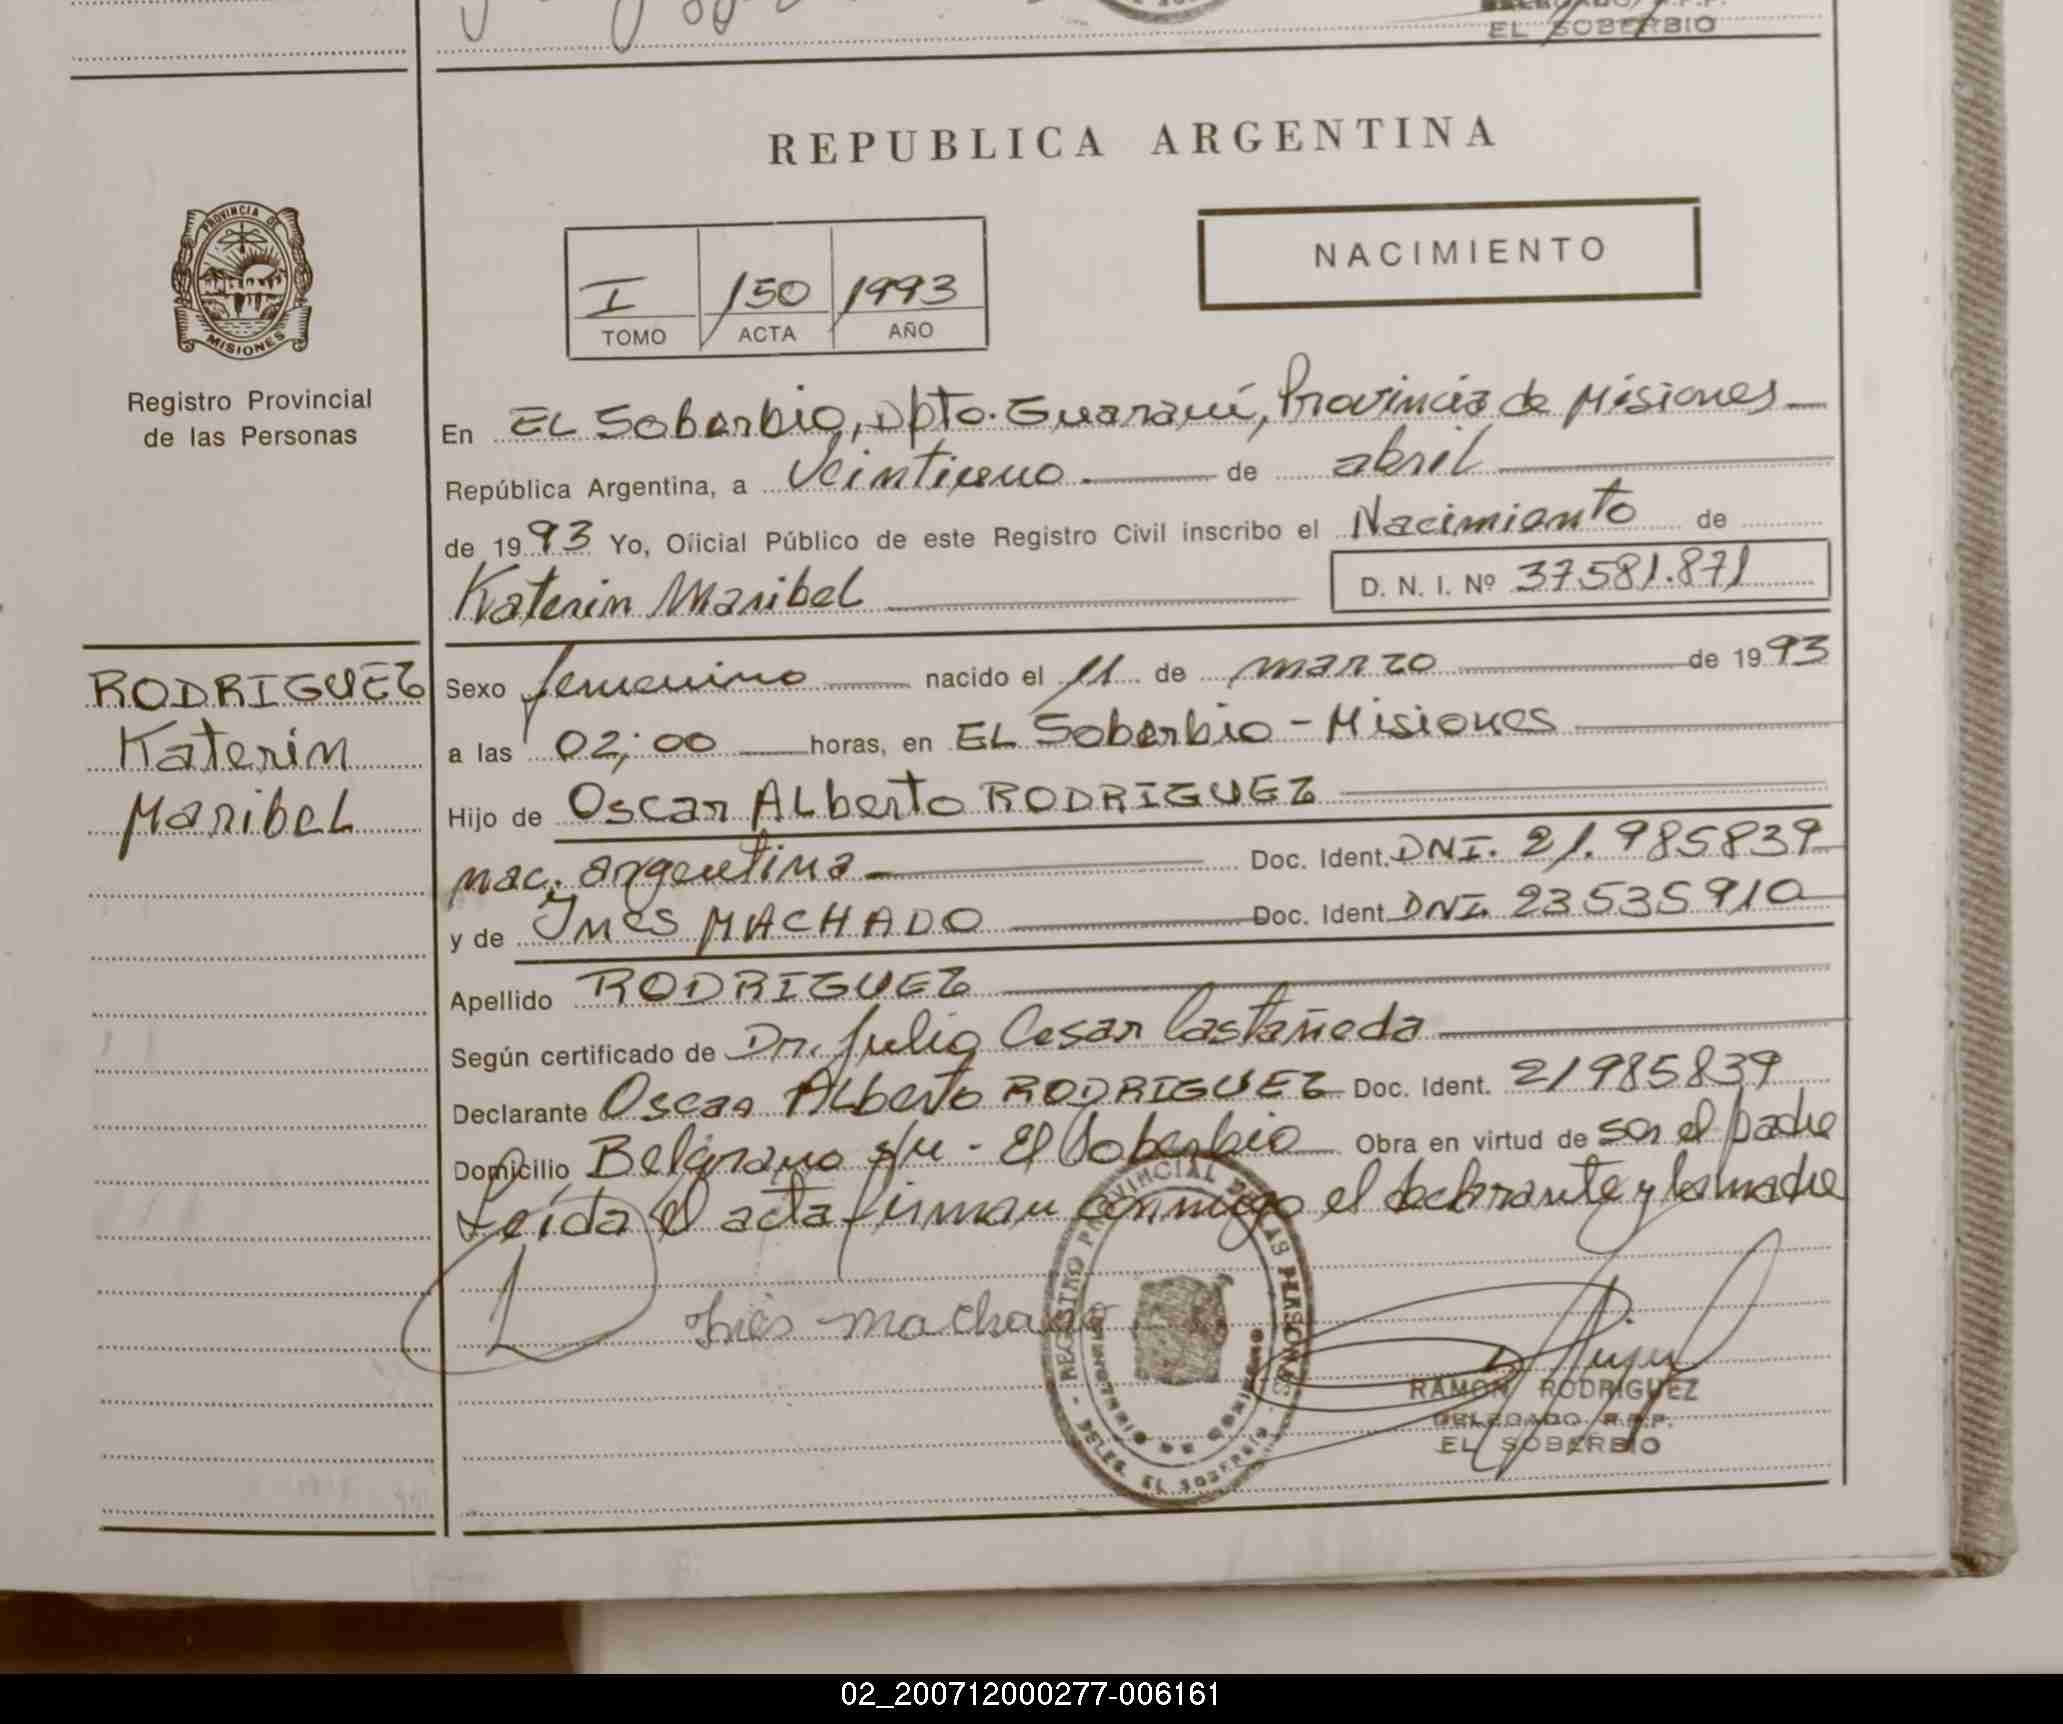 EL SOBERBIO
REPUBLICA ARGENTINA
PROVINCIA DE
MISIONES
Registro Provincial
de las Personas
NACIMIENTO
I 150 1993
TOMO ACTA AÑO
En EL Soberbio, Dpto. Guaraní, Provincia de Misiones
República Argentina, a Veintiuno de abril
de 1993 Yo, Oficial Público de este Registro Civil inscribo el Nacimiento de
Katerin Maribel D. N. I. Nº 37581.871
RODRIGUEZ
Katerin
Maribel
Sexo femenino nacido el 11 de marzo de 1993
a las 02;00 horas, en EL Soberbio - Misiones
Hijo de Oscar ALberto RODRIGUEZ
nac. argentina Doc. Ident. DNI. 21.985839
y de Ines MACHADO Doc. Ident. DNI. 23535910
Apellido RODRIGUEZ
Según certificado de Dr. Julio Cesar Castañeda
Declarante Oscar ALberto RODRIGUEZ Doc. Ident. 21985839
Domicilio Belgrano s/n - El Soberbio Obra en virtud de ser el padre
Leída el acta firman conmigo el declarante y la madre
Inés machado
REGISTRO PROVINCIAL DE LAS PERSONAS
DELEG. EL SOBERBIO
RAMON RODRIGUEZ
DELEGADO R.P.P.
EL SOBERBIO
02_200712000277-006161